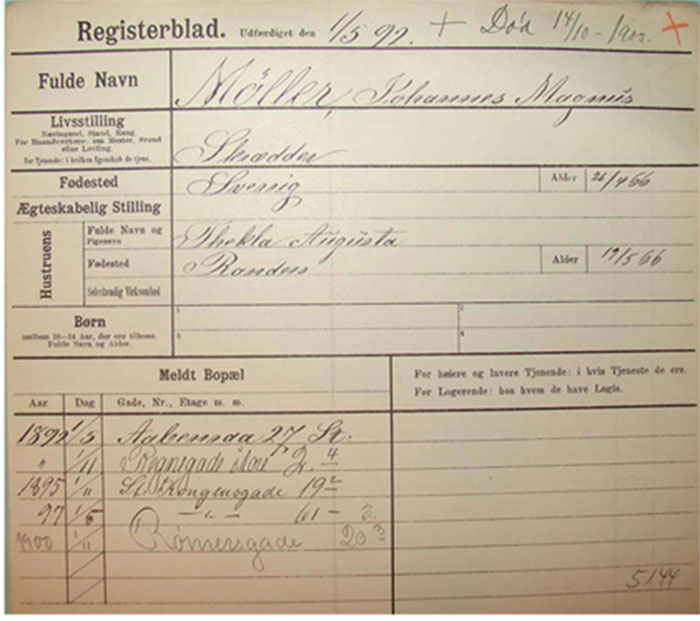 Registerblad. Udfærdiget den 1/5 92. + Död 14/10-1902. +
Fulde Navn Möller, Johannes Magnus
Livsstilling
Næringsvei, Stand, Rang.
For Haandværkere: om Mester, Svend
eller Lærling.
For Tjenende: i hvilken Egenskab de tjene.
Skrædder
Fødested Sverrig Alder 26/4 66
Ægteskabelig Stilling
Hustruens
Fulde Navn og
Pigenavn
Thekla Augusta
Fødested Randers Alder 19/5 66
Selvstændig Virksomhed
Børn
mellem 10-14 Aar, der ere tilhuse.
Fulde Navn og Alder.
1 2
3 4
Meldt Bopæl
For høiere og lavere Tjenende: i hvis Tjeneste de ere.
For Logerende: hos hvem de have Logis.
Aar Dag Gade, Nr., Etage m. m.
1892 1/5 Aabenraa 27 St.
" 1/11 Regnegade store 2. 4
1895 1/11 St. Kongensgade 19 2
97 1/5 - " - 61 - 2.
1900 1/11 Rømersgade 20 3
5144